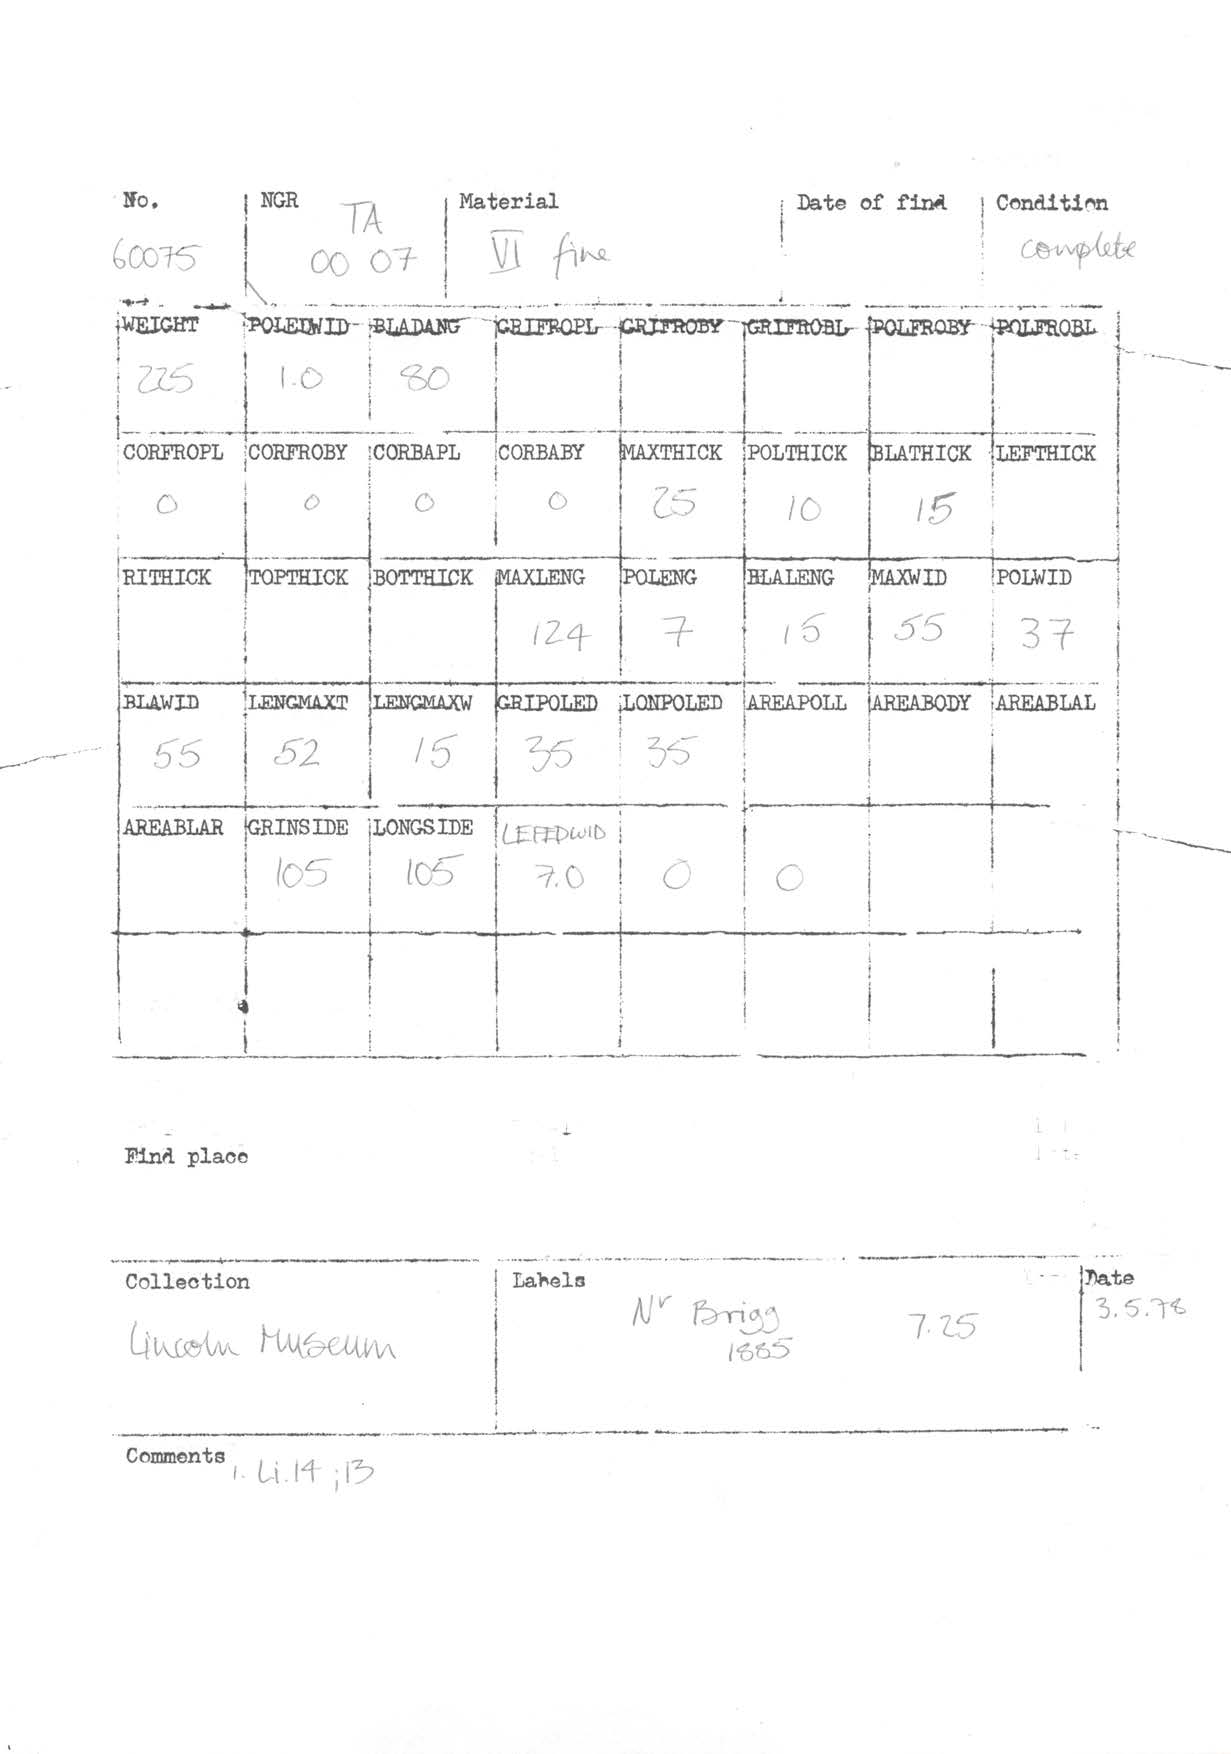 No. NGR Material Date of find Condition
TA
60075 00 07 VI fine complete
WEIGHT POLEDWID BLADANG GRIFROPL GRIFROBY GRIFROBL POLFROBY POLFROBL
225 1.0 80
CORFROPL CORFROBY CORBAPL CORBABY MAXTHICK POLTHICK BLATHICK LEFTHICK
0 0 0 0 25 10 15
RITHICK TOPTHICK BOTTHICK MAXLENG POLENG BLALENG MAXWID POLWID
124 7 15 55 37
BLAWID LENGMAXT LENGMAXW GRIPOLED LONPOLED AREAPOLL AREABODY AREABLAL
55 52 15 35 35
AREABLAR GRINSIDE LONGSIDE LEFEDWID
105 105 7.0 0 0
Find place
Collection Labels Date
Nr Brigg 7.25 3.5.78
Lincoln Museum 1885
Comments 1. Li.14 ; 13